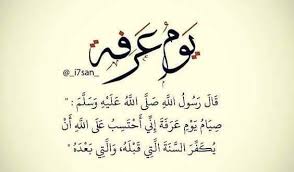 يَوْمُ عَرَفَة
@_i7san_
قَالَ رَسُولُ اللَّهِ صَلَّى اللَّهُ عَلَيْهِ وَسَلَّمَ : "
صِيَامُ يَوْمِ عَرَفَةَ إِنِّي أَحْتَسِبُ عَلَى اللَّهِ أَنْ
يُكَفِّرَ السَّنَةَ الَّتِي قَبْلَهُ ، وَالَّتِي بَعْدَهُ "